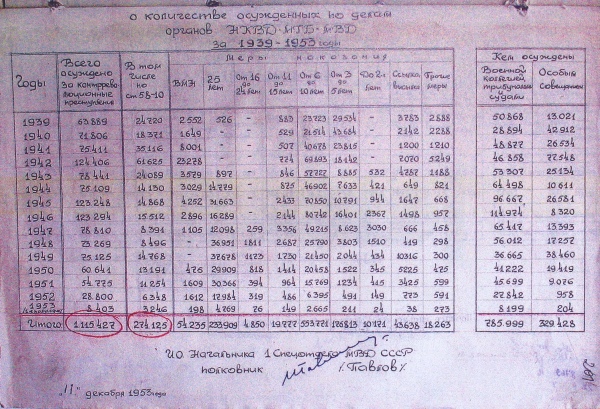 о количестве осужденных по делам
органов НКВД-МГБ-МВД
за 1939-1953 годы
Годы Всего осуждено за контрреволюционные преступления В том числе по ст 58-10 Меры наказания Кем осуждены
ВМН 25 лет От 16 до 24 лет От 11 до 15 лет От 6 до 10 лет От 3 до 5 лет До 2х лет Ссылка, высылка Прочие меры Военной коллегией трибуналами судами Особым совещанием
1939 63.889 24.720 2.552 526 - 883 23.723 29.534 - 3783 2888 50.868 13.021
1940 71.806 18.371 1.649 - - 529 43.684 - 2142 2288 28.894 42.912
1941 75.411 35.116 8.001 - - 507 40.678 23.815 - 1200 1210 48.877 26.534
1942 124.406 61.625 23.278 - - 774 69.893 18.142 - 7070 5249 46.858 77.548
1943 78.441 24.089 3579 897 - 846 57.727 8885 532 4787 1188 53.307 25.134
1944 75.109 14.130 3029 14.779 - 875 46902 7633 421 649 821 64.498 10.611
1945 123.248 14.868 4252 31.663 - 2433 70.850 10.791 944 1647 668 96.667 26.581
1946 123.294 15.512 2896 16.289 - 2144 80.742 16.401 2367 1498 957 114.974 8.320
1947 78.810 8.391 1105 12.098 259 3356 49215 8.623 3030 666 458 65.417 13.393
1948 73.269 8.496 - 36.951 1811 2687 25.790 3803 1510 419 298 56.012 17.257
1949 75.125 14.768 - 37.678 1173 1730 21.450 2044 434 10316 300 36.665 38.460
1950 60.641 13.191 475 29.909 818 414 20.458 1522 345 5225 475 41.222 19.419
1951 54.775 11.254 1609 30.366 394 964 15.769 1234 415 3425 599 45.699 9.076
1952 28.800 6.348 1612 17.984 319 486 6.395 491 149 773 591 27.842 958
1953 8.403 3.246 198 4.769 26 149 2.665 211 24 38 273 8.199 204
Итого 1.115.427 274.125 54.235 233.909 4.850 19.777 553.771 176813 10.171 43.638 18.263 785.999 329.428
И.О. Начальника 1 Спецотдела МВД СССР
полковник /Павлов/
"11" декабря 1953 года